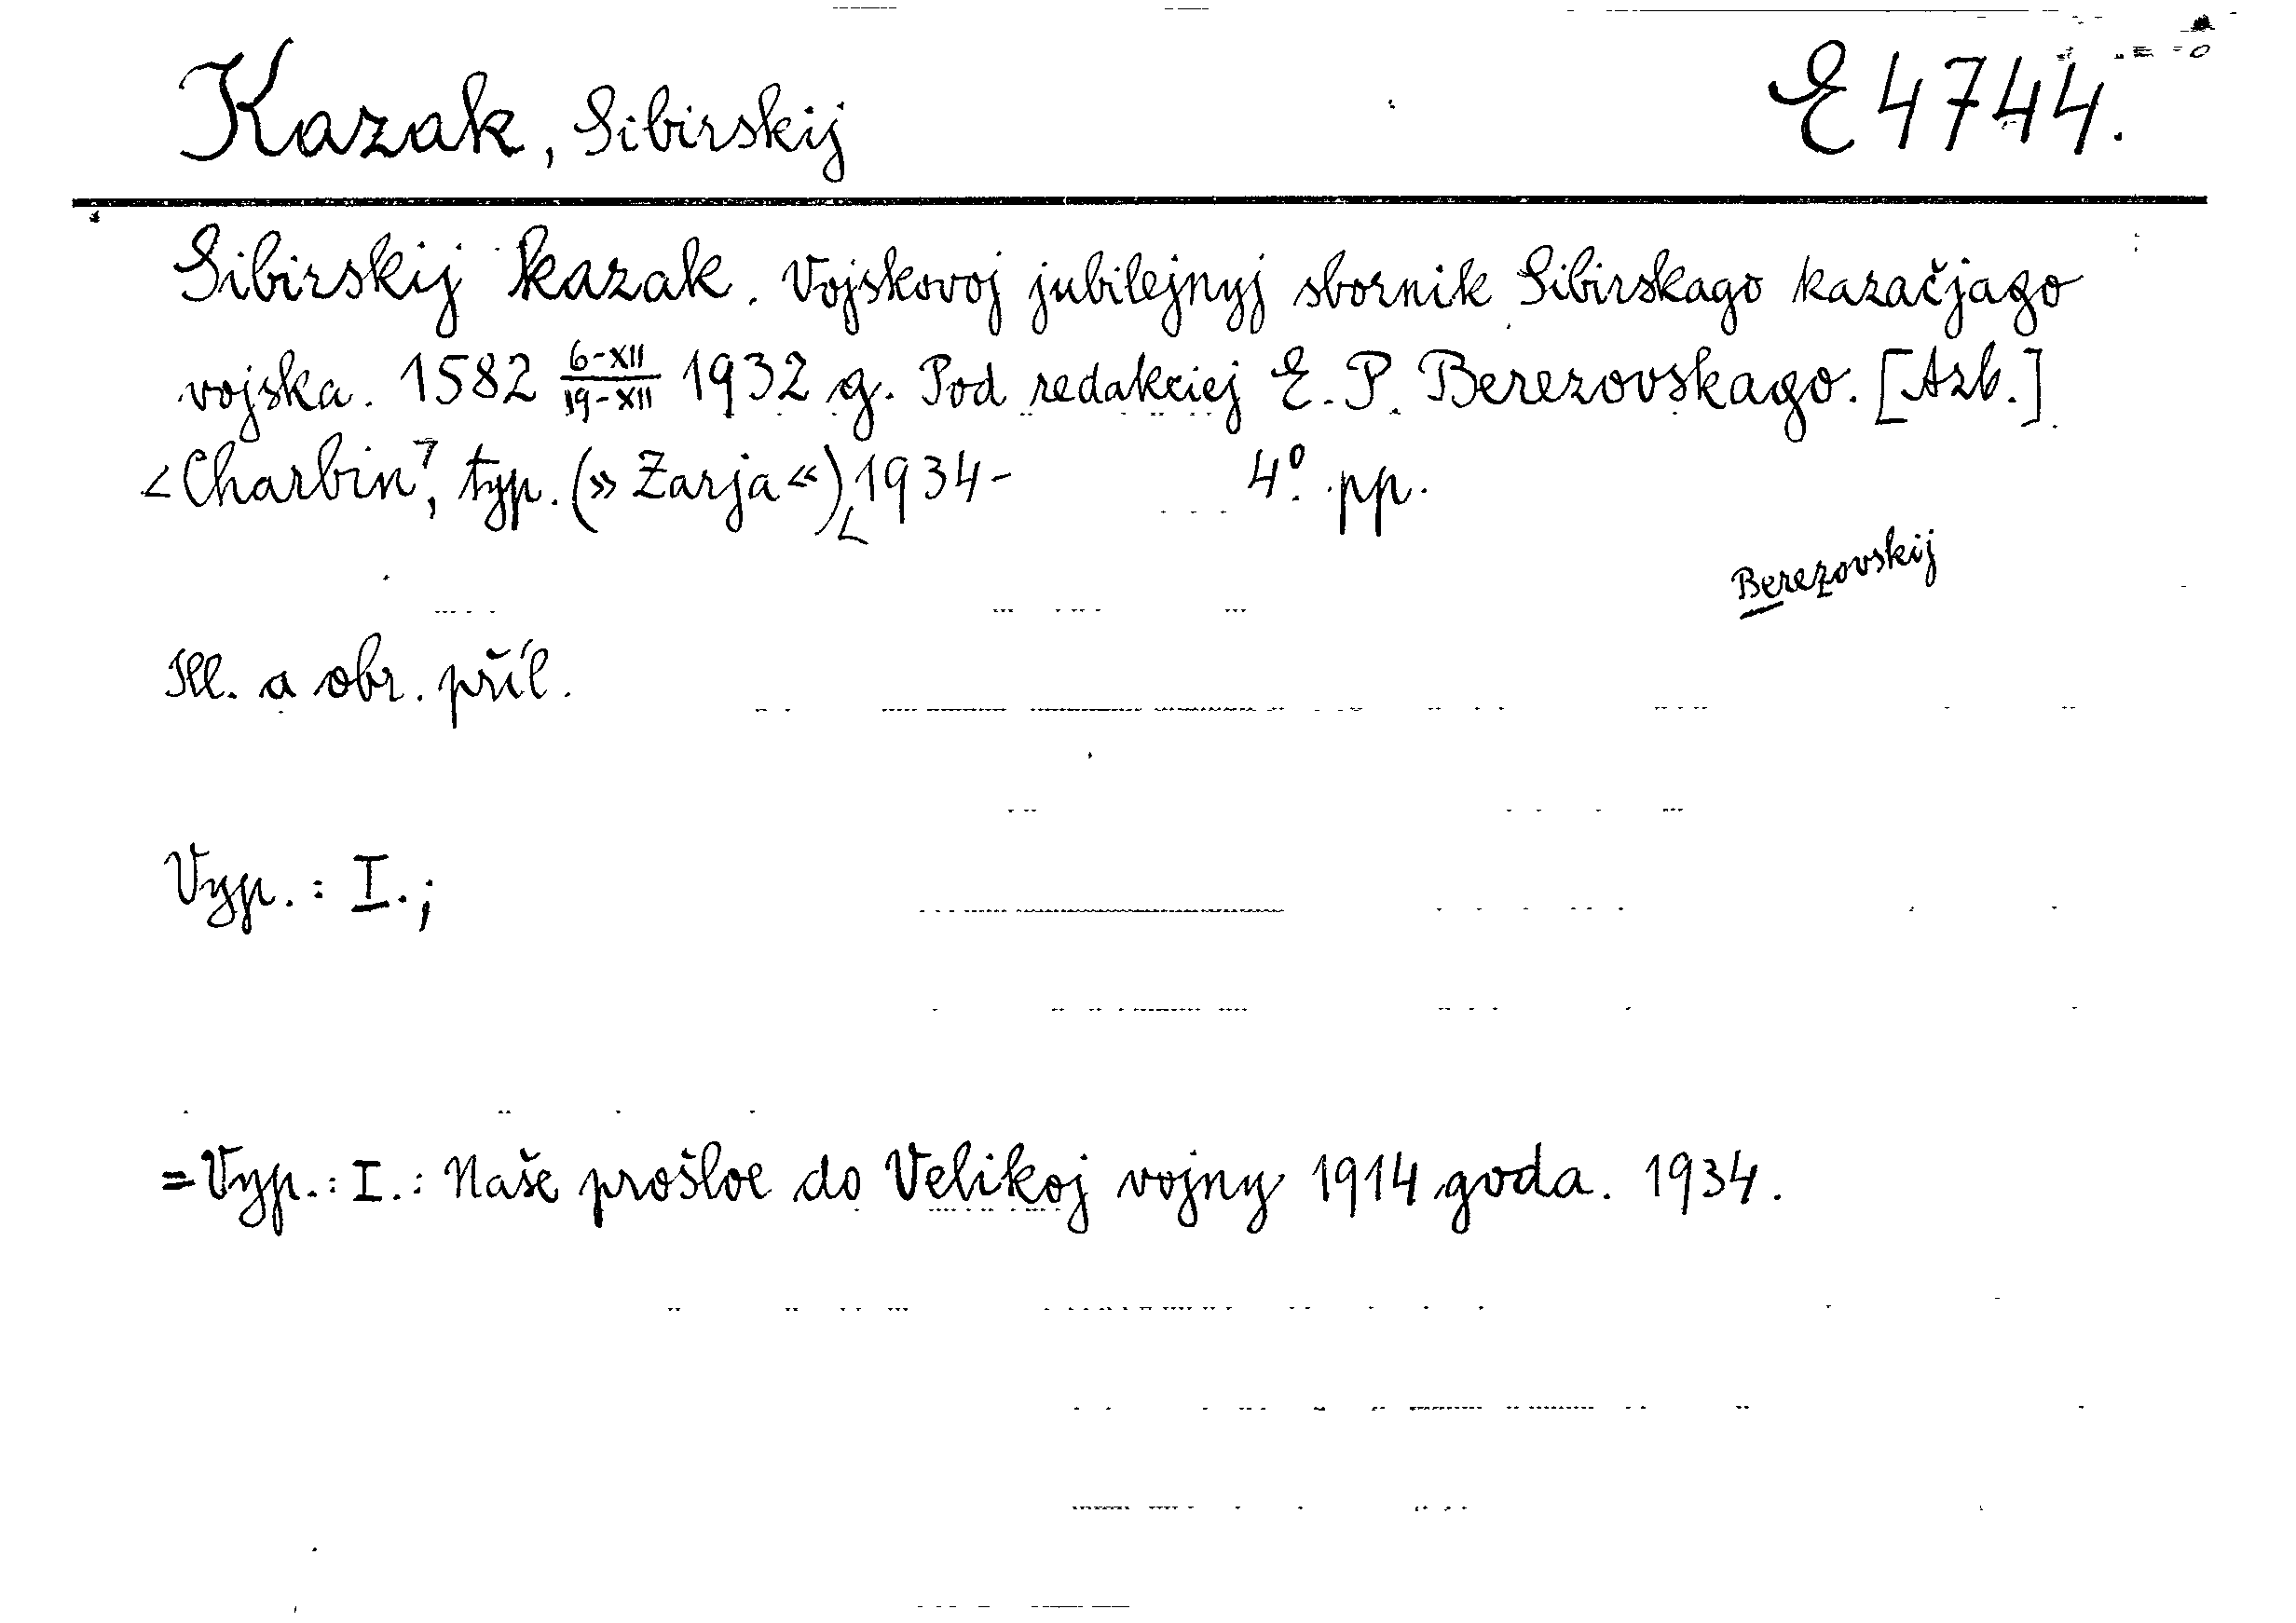 Kazak, Sibirskij E 4744.
Sibirskij kazak. Vojskovoj jubilejnyj sbornik Sibirskago kazačjago
vojska. 1582 6-XII/19-XII 1932 g. Pod redakciej E. P. Berezovskago. [Azb.]
<Charbin>, typ. (»Zarja«) 1934- 4°. pp.
Berezovskij
Ill. a obr. příl.
Vyp. : I. ;
= Vyp. : I. : Naše prošloe do Velikoj vojny 1914 goda. 1934.